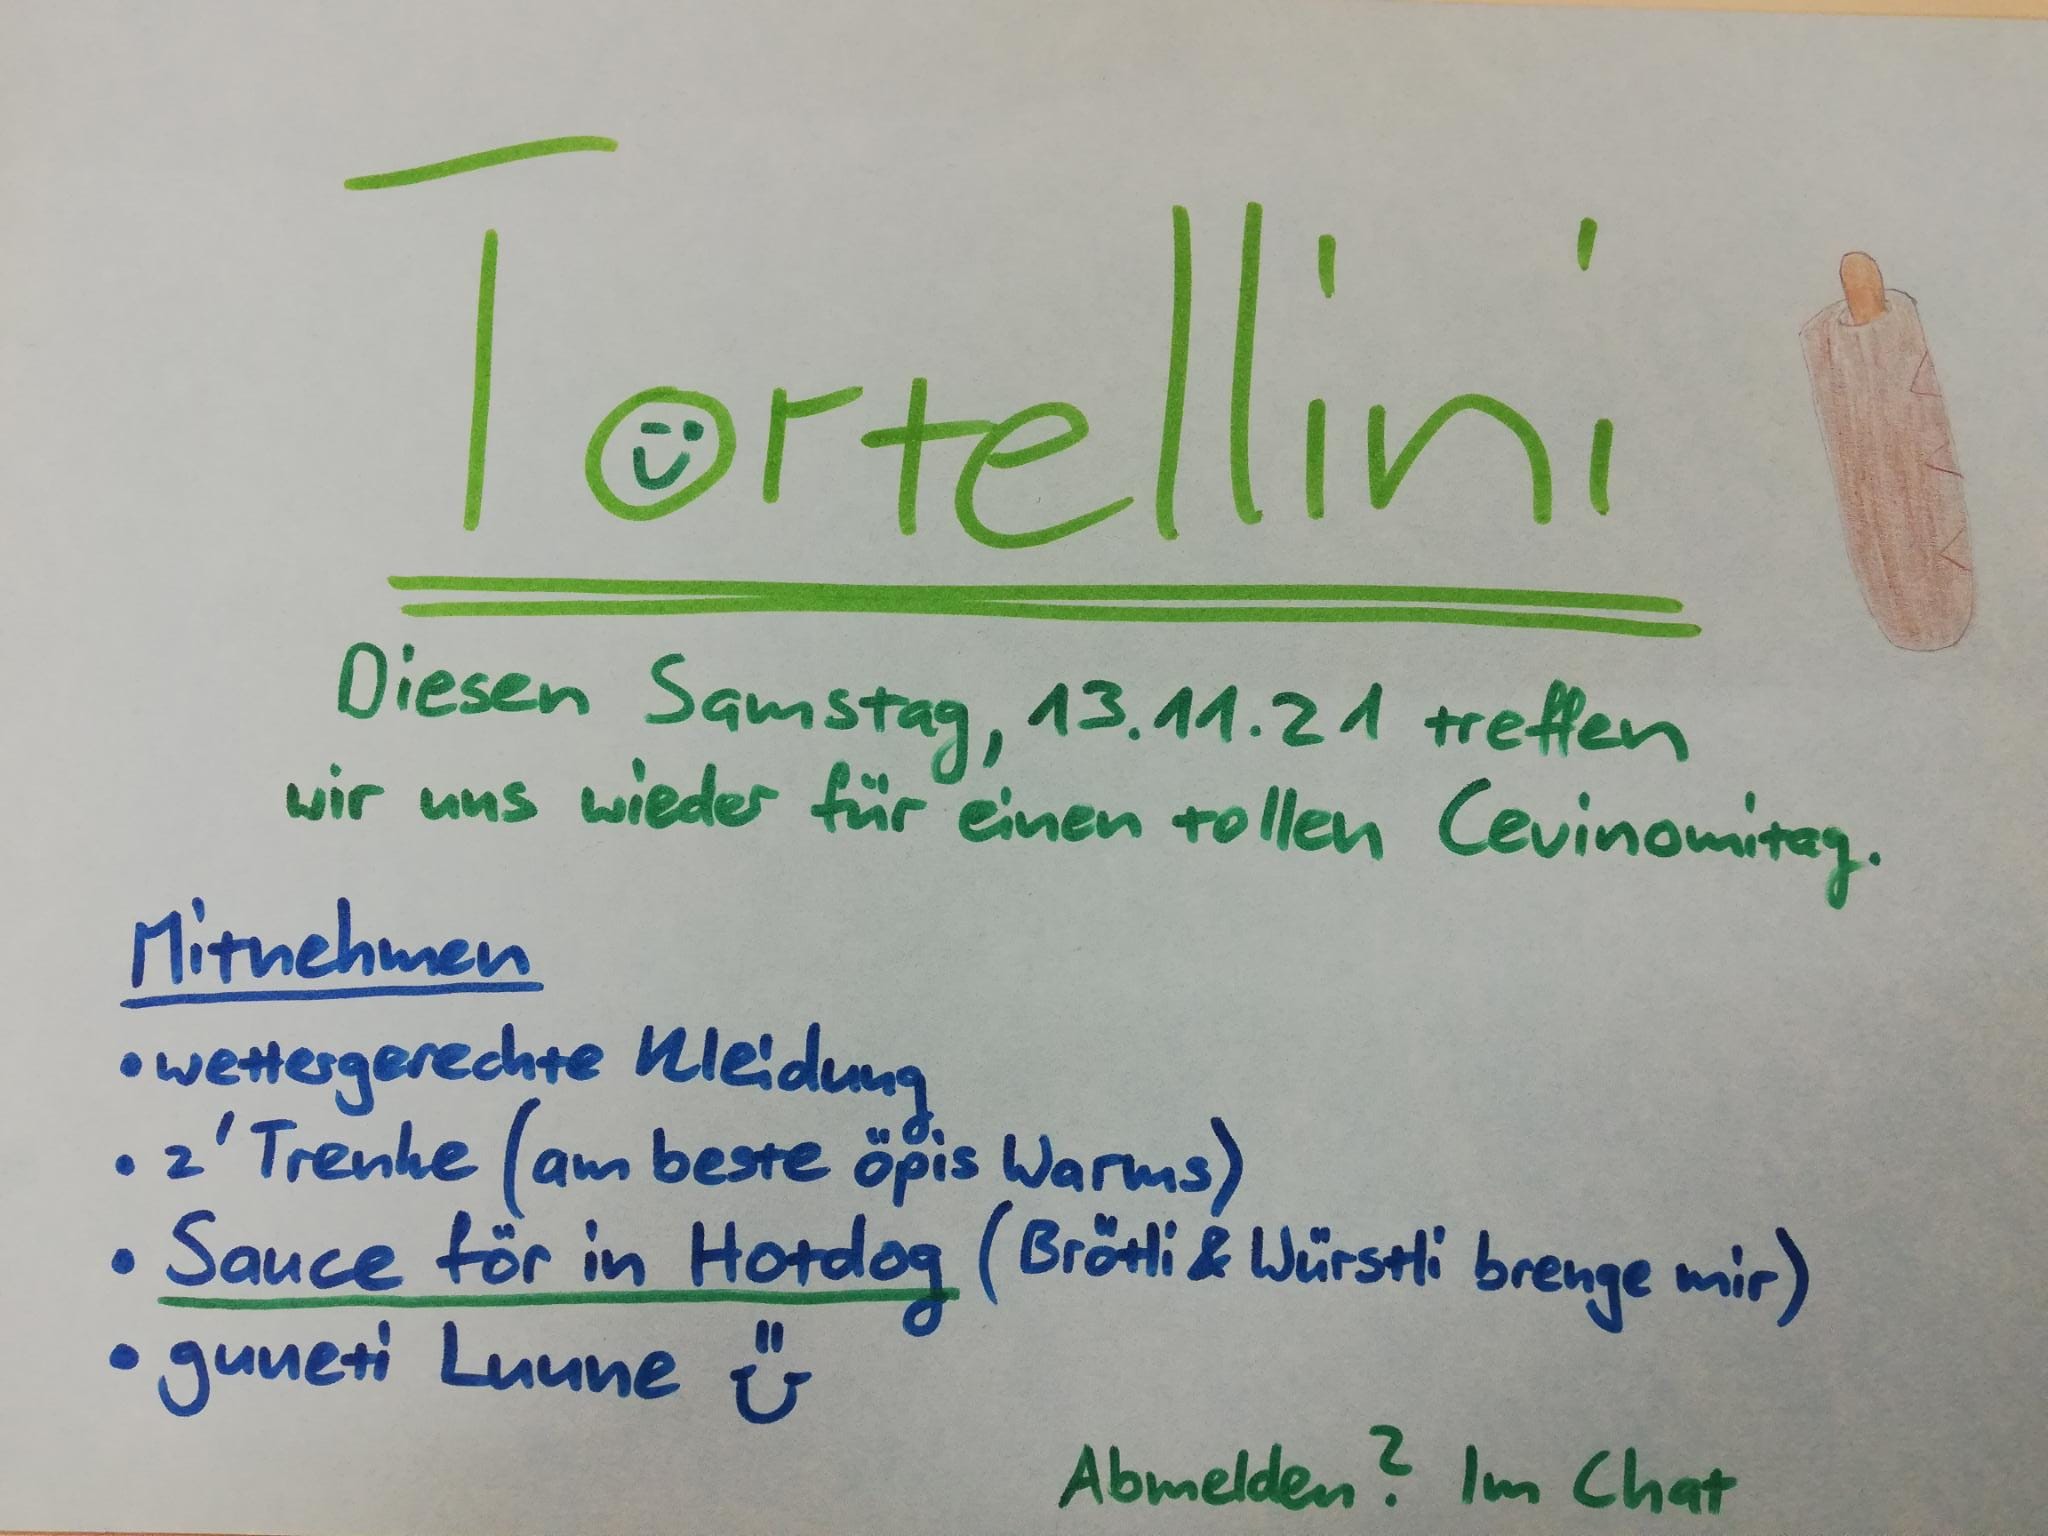 Tortellini
Diesen Samstag, 13.11.21 treffen
wir uns wieder für einen tollen Cevinomitag.
Mitnehmen
• wettergerechte Kleidung
• z'Trenke (am beste öpis Warms)
• Sauce för in Hotdog (Brötli & Würstli brenge mir)
• gueti Luune
Abmelden? Im Chat